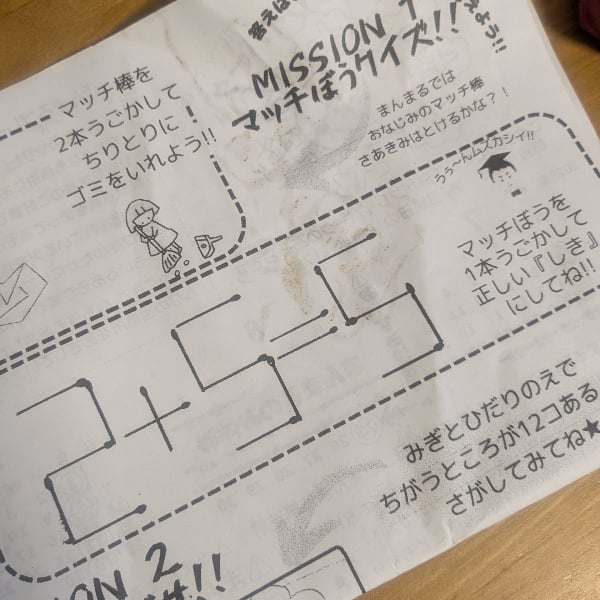 MISSION 1
マッチぼうクイズ!!
まんまるでは
おなじみのマッチ棒
さあきみはとけるかな?!
マッチ棒を
2本うごかして
ちりとりに
ゴミをいれよう!!
うぅ〜んムズカシイ!!
マッチぼうを
1本うごかして
正しい『しき』
にしてね!!
2+5=5
みぎとひだりのえで
ちがうところが12コある
さがしてみてね★